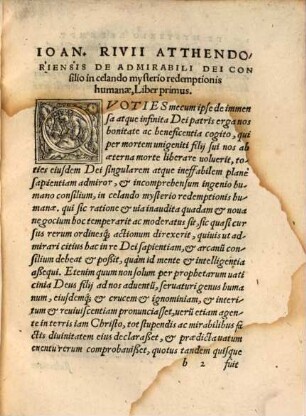 IOAN. RIVII ATTHENDO/
RIENSIS DE ADMIRABILI DEI CON
silio in celando mysterio redemptionis
humanæ, Liber primus.
QVOTIES mecum ipse de immen
sa atque infinita Dei patris erga nos
bonitate ac beneficentia cogito, qui
per mortem unigeniti filij sui nos ab
æterna morte liberare voluerit, to-
ties eiusdem Dei singularem atque ineffabilem planè
sapientiam admiror, & incomprehensum ingenio huma
no consilium, in celando mysterio redemptionis hu-
manæ, qui sic ratione & via inaudita quadam & noua
negocium hoc temperarit ac moderatus sit, sic quasi cur
sus rerum ordinesq́; actionum direxerit, quiuis ut ad-
mirari citius hæc in re Dei sapientiam, & arcanũ con-
silium debeat & possit, quàm id mente & intelligentia
assequi. Etenim quum non solum per prophetarum uati
cinia Deus filij ad nos aduentũ, seruaturi genus huma
num, eiusdemq́; & crucem & ignominiam, & interi-
tum & reuiuiscentiam pronunciasset, uerũ etiam agen
te in terris iam Christo, tot stupendis ac mirabilibus fa
ctis diuinitatem eius declarasset, & prædicta uatum
euentu rerum comprobauisset, quotus tandem quisque
b 2 fuit